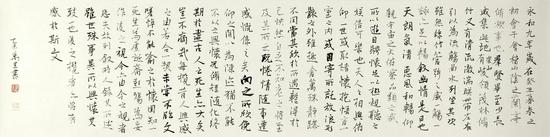 永和九年歲在癸丑暮春之
初會于會稽山陰之蘭亭
脩禊事也群賢畢至少長
咸集此地有崇山峻領茂林脩
竹又有清流激湍暎帶左右
引以為流觴曲水列坐其次
雖無絲竹管弦之盛一觴一
詠亦足以暢敘幽情是日也
天朗氣清惠風和暢仰
觀宇宙之大俯察品類之盛
所以遊目騁懷足以極視聽之
娛信可樂也夫人之相與俯
仰一世或取諸懷抱悟言一
室之內或因寄所託放浪形
骸之外雖趣舍萬殊靜躁
不同當其欣於所遇暫得於
己快然自足不知老之將至
及其所之既惓情隨事遷
感慨係之矣向之所欣俛
仰之間以為陳迹猶不能
不以之興懷況脩短隨化終
期於盡古人云死生亦大矣
豈不痛哉每攬昔人興感
之由若合一契未嘗不臨文
嗟悼不能喻之於懷固知
一死生為虛誕齊彭殤為妄
作後之視今亦由今之視昔
悲夫故列敘時人錄其所述
雖世殊事異所以興懷其
致一也後之攬者亦將有
感於斯文